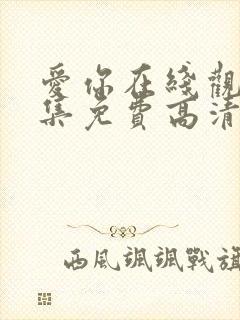 愛你在綫觀
集免費高清
西風颯颯戰旗